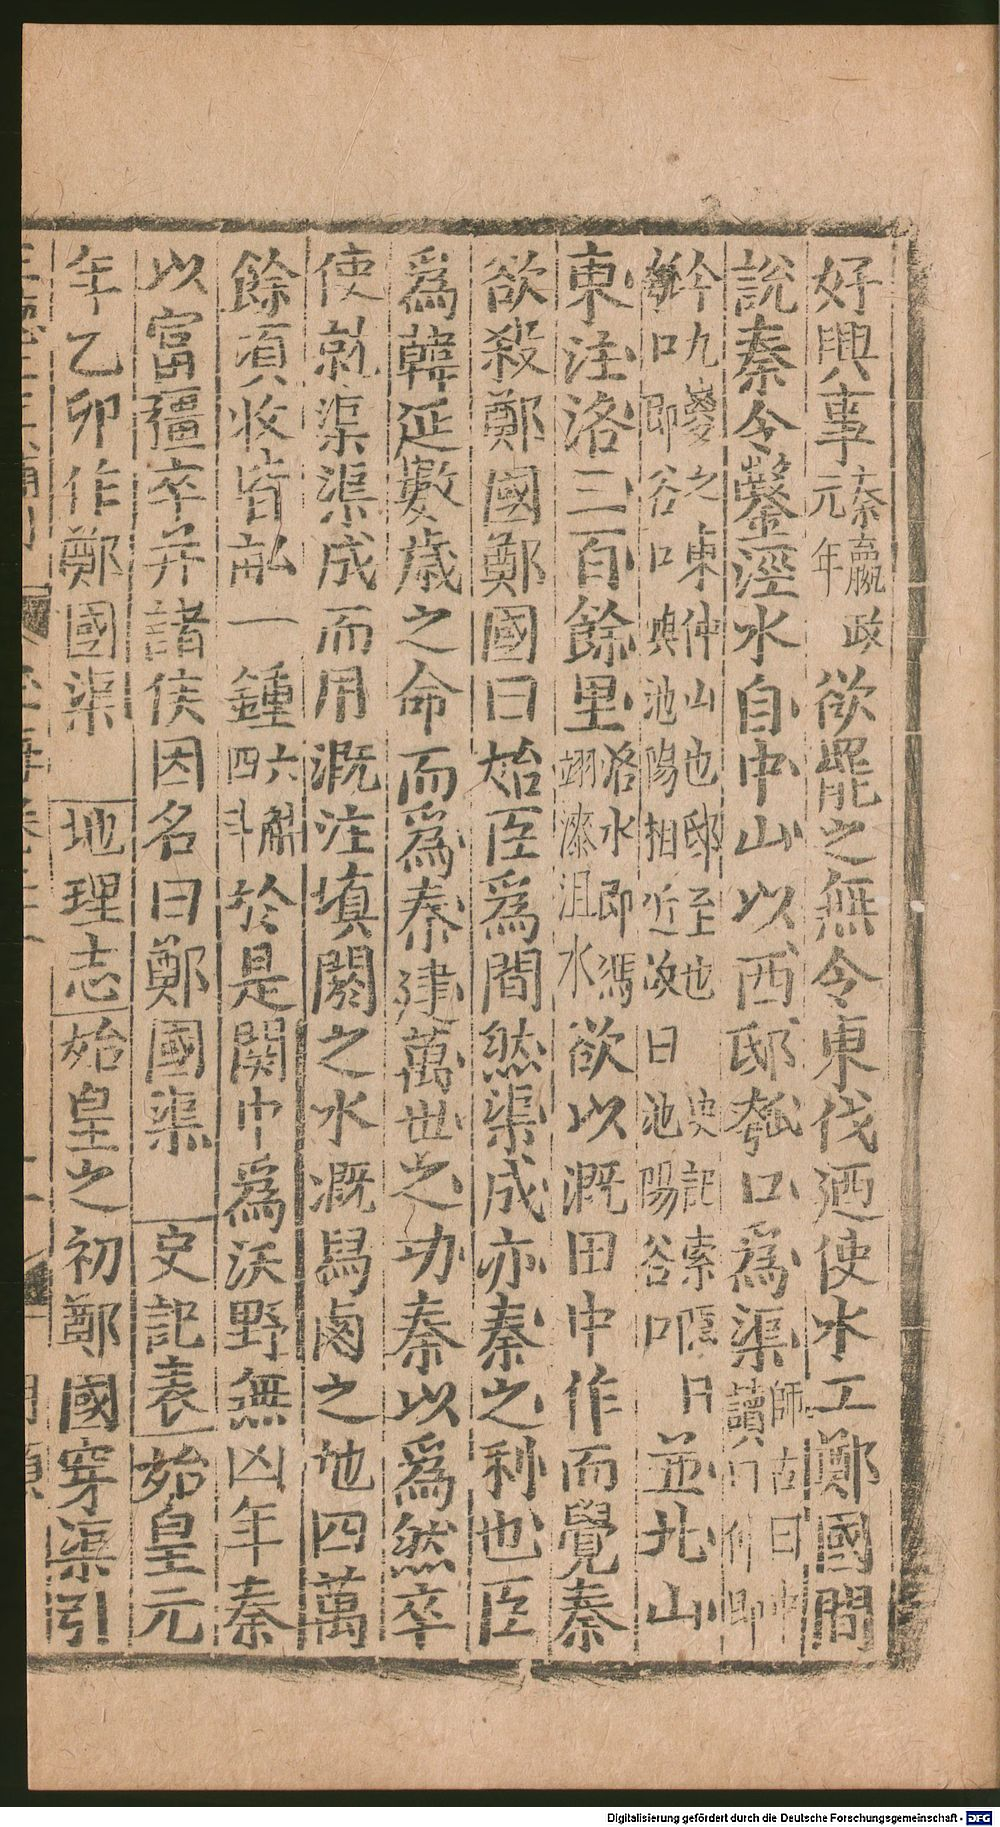 好興事秦嬴政元年欲罷之無令東伐迺使水工鄭國間
說秦令鑿涇水自中山以西邸瓠口為渠師古曰中讀曰仲即
今九嵏之東仲山也邸至也史記索隱曰瓠口即谷口與池陽相近故曰池陽谷口並北山
東注洛三百餘里洛水即馮翊漆沮水欲以溉田中作而覺秦
欲殺鄭國鄭國曰始臣為間然渠成亦秦之利也臣
為韓延數歲之命而為秦建萬世之功秦以為然卒
使就渠渠成而用溉注填閼之水溉舄鹵之地四萬
餘頃收皆畝一鍾六斛四斗於是関中為沃野無凶年秦
以富彊卒并諸侯因名曰鄭國渠 史記表始皇元
年乙卯作鄭國渠 地理志始皇之初鄭國穿渠引
Digitalisierung gefördert durch die Deutsche Forschungsgemeinschaft - DFG